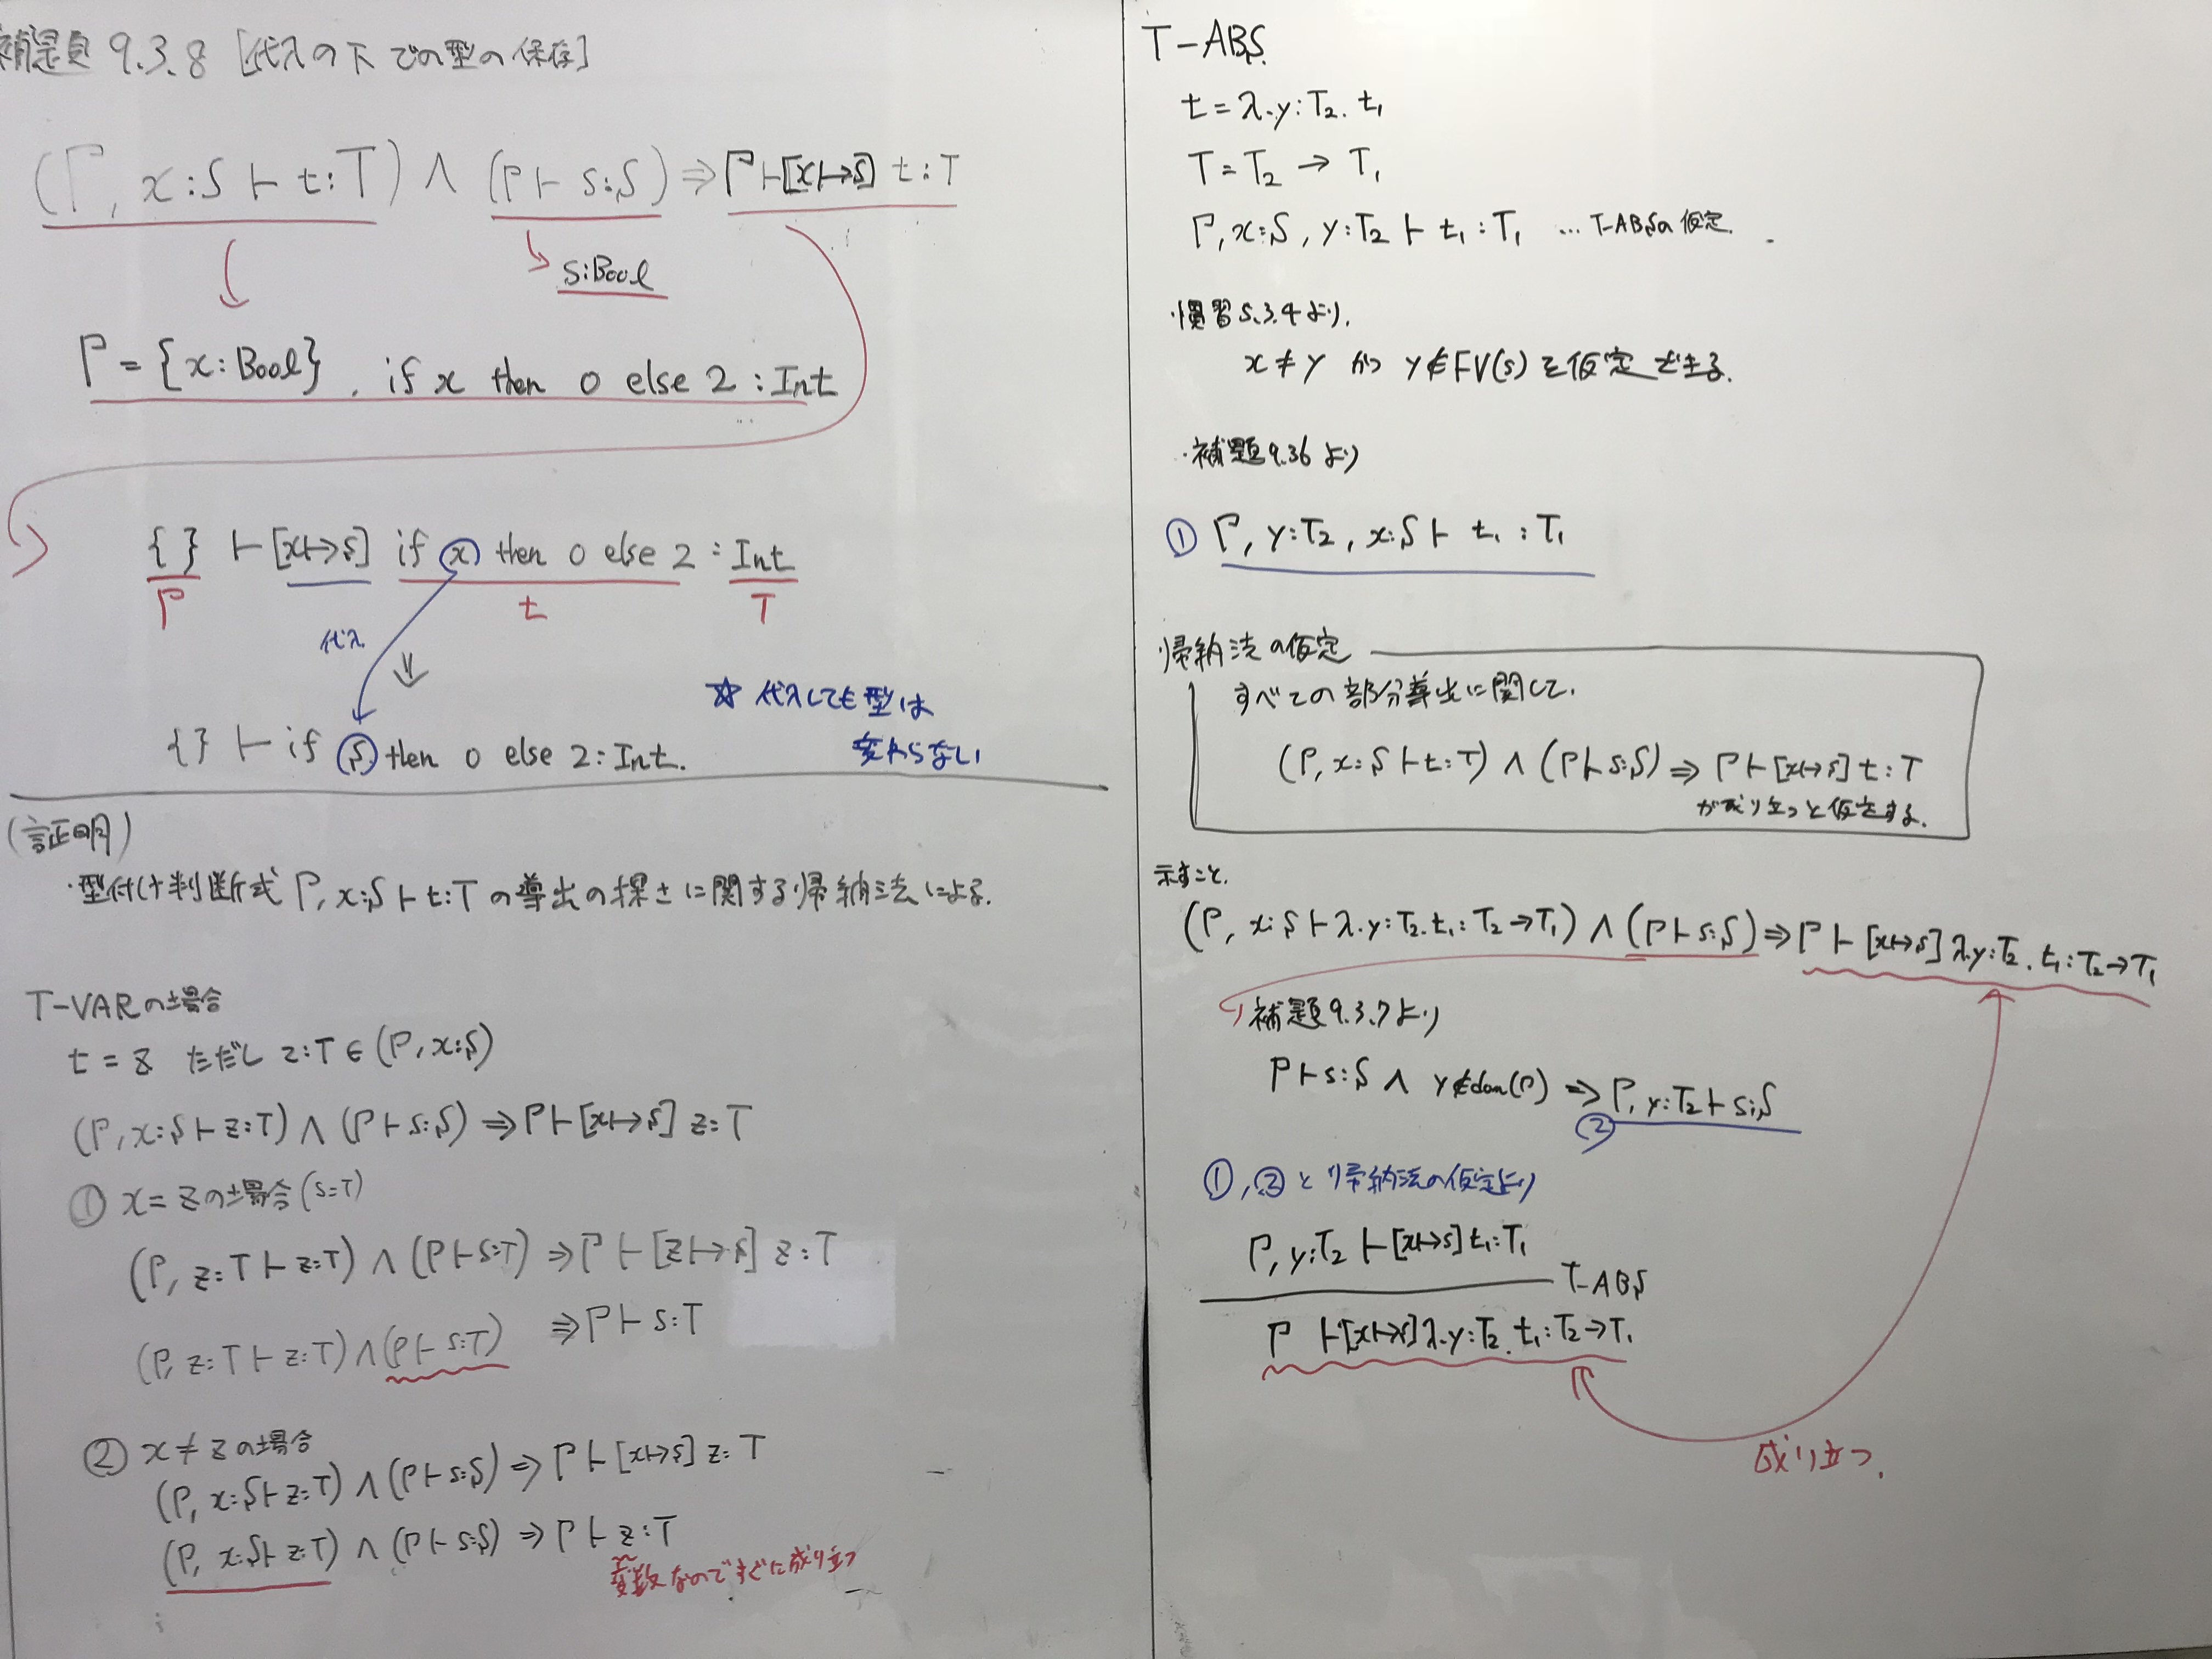 補題 9.3.8 [代入の下での型の保存]
(Γ, x:S ⊢ t:T) ∧ (Γ ⊢ s:S) ⇒ Γ ⊢ [x↦s] t:T
s:Bool
Γ = {x:Bool}, if x then 0 else 2 : Int
{ } ⊢ [x↦s] if x then 0 else 2 : Int
Γ t T
代入
⇓
{ } ⊢ if s then 0 else 2 : Int.
☆ 代入しても型は
変わらない
(証明)
・型付け判断式 Γ, x:S ⊢ t:T の導出の深さに関する帰納法による.
T-VARの場合
t = z ただし z:T ∈ (Γ, x:S)
(Γ, x:S ⊢ z:T) ∧ (Γ ⊢ s:S) ⇒ Γ ⊢ [x↦s] z:T
① x = z の場合 (S=T)
(Γ, z:T ⊢ z:T) ∧ (Γ ⊢ s:T) ⇒ Γ ⊢ [z↦s] z:T
(Γ, z:T ⊢ z:T) ∧ (Γ ⊢ s:T) ⇒ Γ ⊢ s:T
② x ≠ z の場合
(Γ, x:S ⊢ z:T) ∧ (Γ ⊢ s:S) ⇒ Γ ⊢ [x↦s] z:T
(Γ, x:S ⊢ z:T) ∧ (Γ ⊢ s:S) ⇒ Γ ⊢ z:T
変数なのですぐに成り立つ
T-ABS
t = λ.y:T₂. t₁
T = T₂ → T₁
Γ, x:S, y:T₂ ⊢ t₁ : T₁ … T-ABSの仮定.
・慣習5.3.4より.
x ≠ y かつ y ∉ FV(s) を仮定できる.
・補題9.3.6 より
① Γ, y:T₂, x:S ⊢ t₁ : T₁
帰納法の仮定
すべての部分導出に関して.
(Γ, x:S ⊢ t:T) ∧ (Γ ⊢ s:S) ⇒ Γ ⊢ [x↦s] t:T
が成り立つと仮定する.
示すこと.
(Γ, x:S ⊢ λ.y:T₂.t₁ : T₂→T₁) ∧ (Γ ⊢ s:S) ⇒ Γ ⊢ [x↦s] λ.y:T₂.t₁ : T₂→T₁
補題9.3.7より
Γ ⊢ s:S ∧ y ∉ dom(Γ) ⇒ Γ, y:T₂ ⊢ s:S
②
①, ② と 帰納法の仮定より
Γ, y:T₂ ⊢ [x↦s] t₁:T₁
T-ABS
Γ ⊢ [x↦s] λ.y:T₂. t₁ : T₂→T₁
成り立つ.